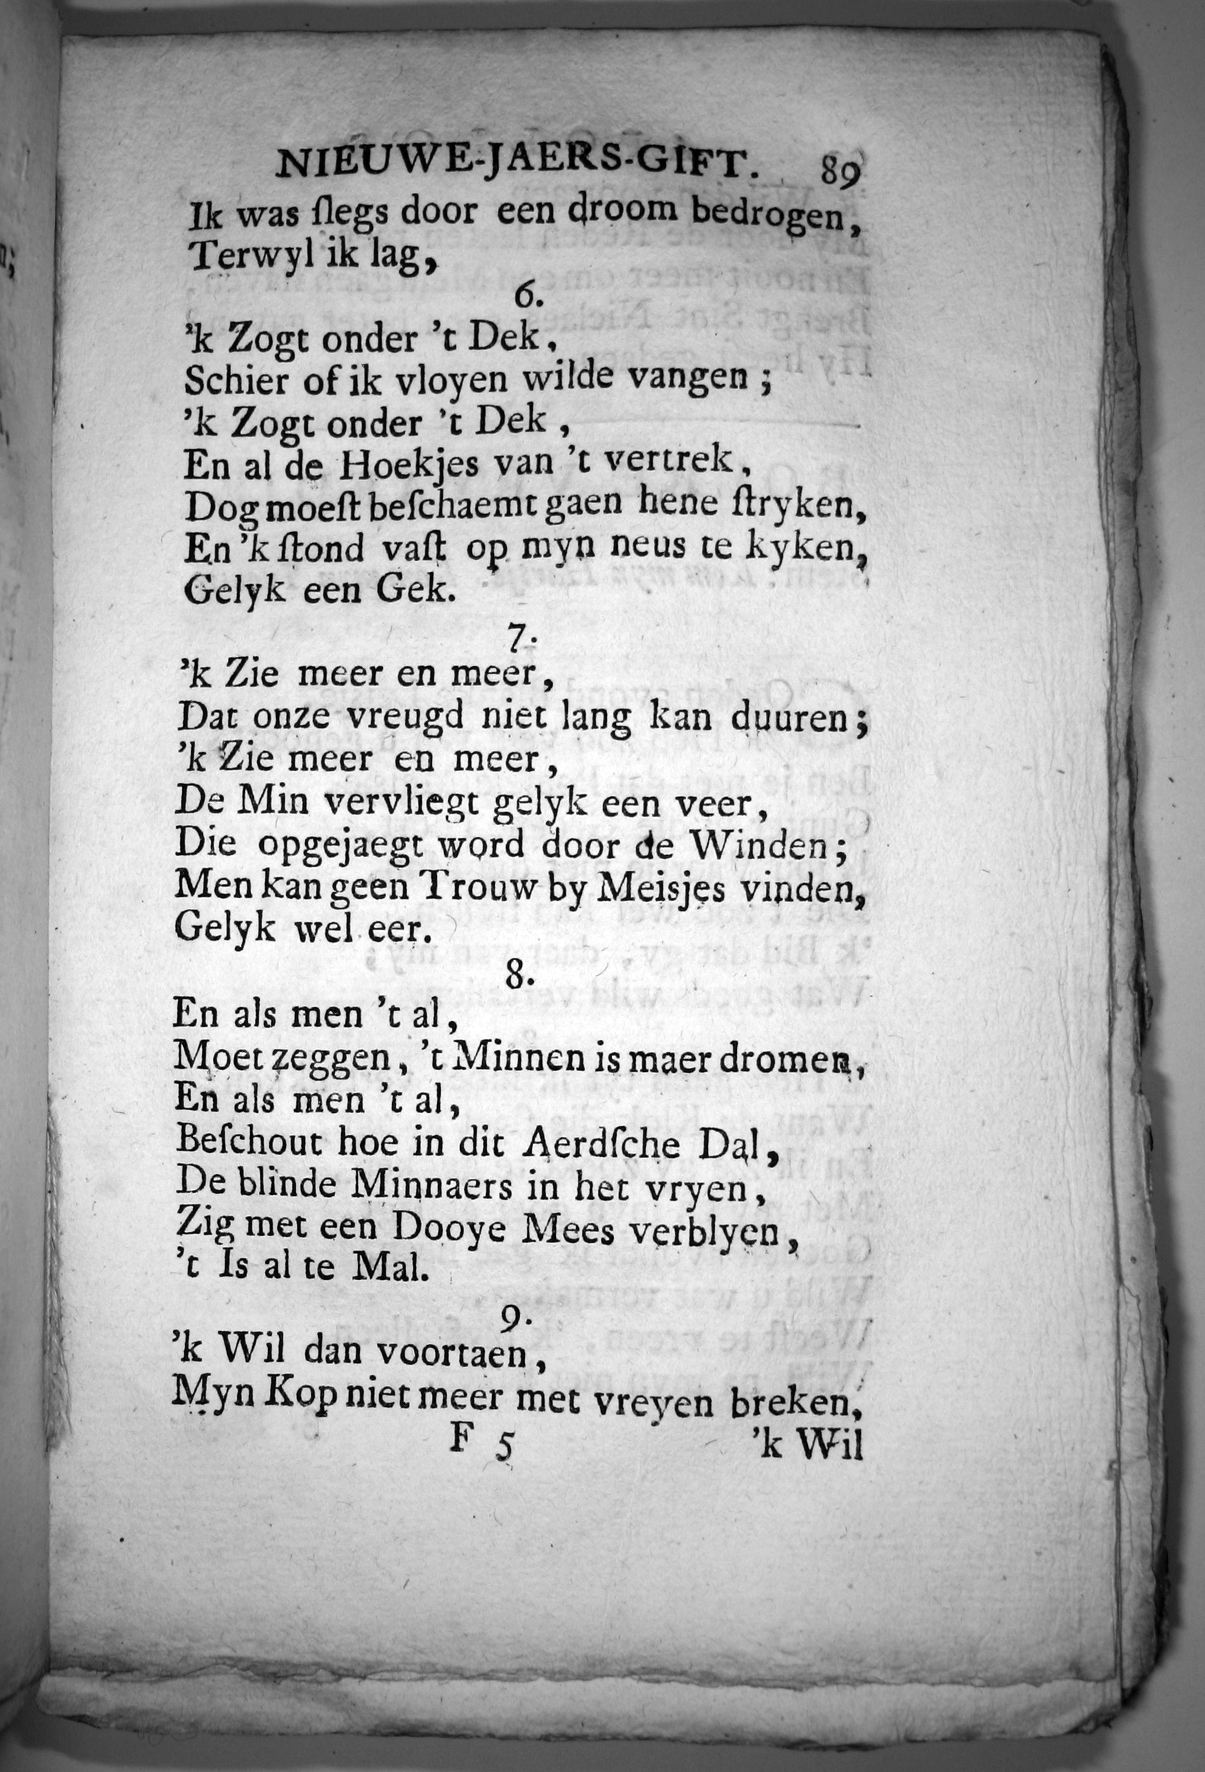 NIEUWE-JAERS-GIFT. 89
Ik was ſlegs door een droom bedrogen,
Terwyl ik lag,
6.
’k Zogt onder ’t Dek,
Schier of ik vloyen wilde vangen ;
’k Zogt onder ’t Dek ,
En al de Hoekjes van ’t vertrek,
Dog moeſt beſchaemt gaen hene ſtryken,
En ’k ſtond vaſt op myn neus te kyken,
Gelyk een Gek.
7.
’k Zie meer en meer,
Dat onze vreugd niet lang kan duuren;
’k Zie meer en meer,
De Min vervliegt gelyk een veer,
Die opgejaegt word door de Winden;
Men kan geen Trouw by Meisjes vinden,
Gelyk wel eer.
8.
En als men ’t al,
Moet zeggen, ’t Minnen is maer dromen,
En als men ’t al,
Beſchout hoe in dit Aerdſche Dal,
De blinde Minnaers in het vryen,
Zig met een Dooye Mees verblyen,
’t Is al te Mal.
9.
’k Wil dan voortaen,
Myn Kop niet meer met vreyen breken,
F 5 ’k Wil